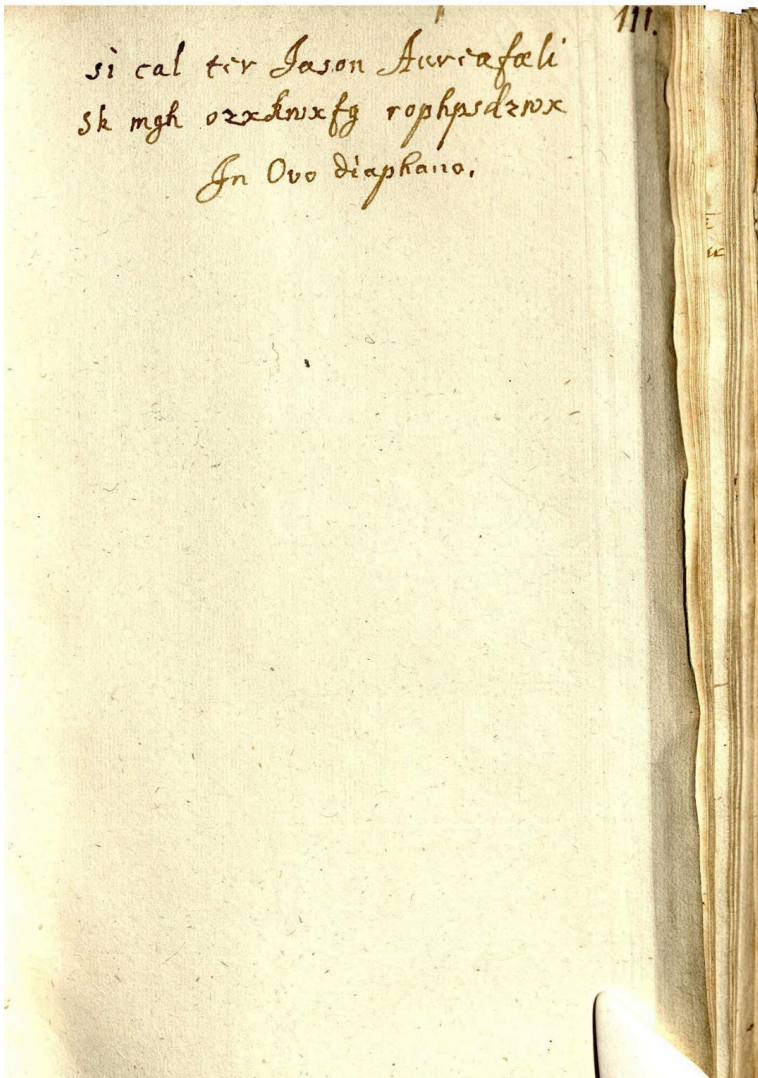 111.
si cal ter Jason Aureafæli
sk mgh ozxknxfg rophpsdznx
In Ovo diaphano.